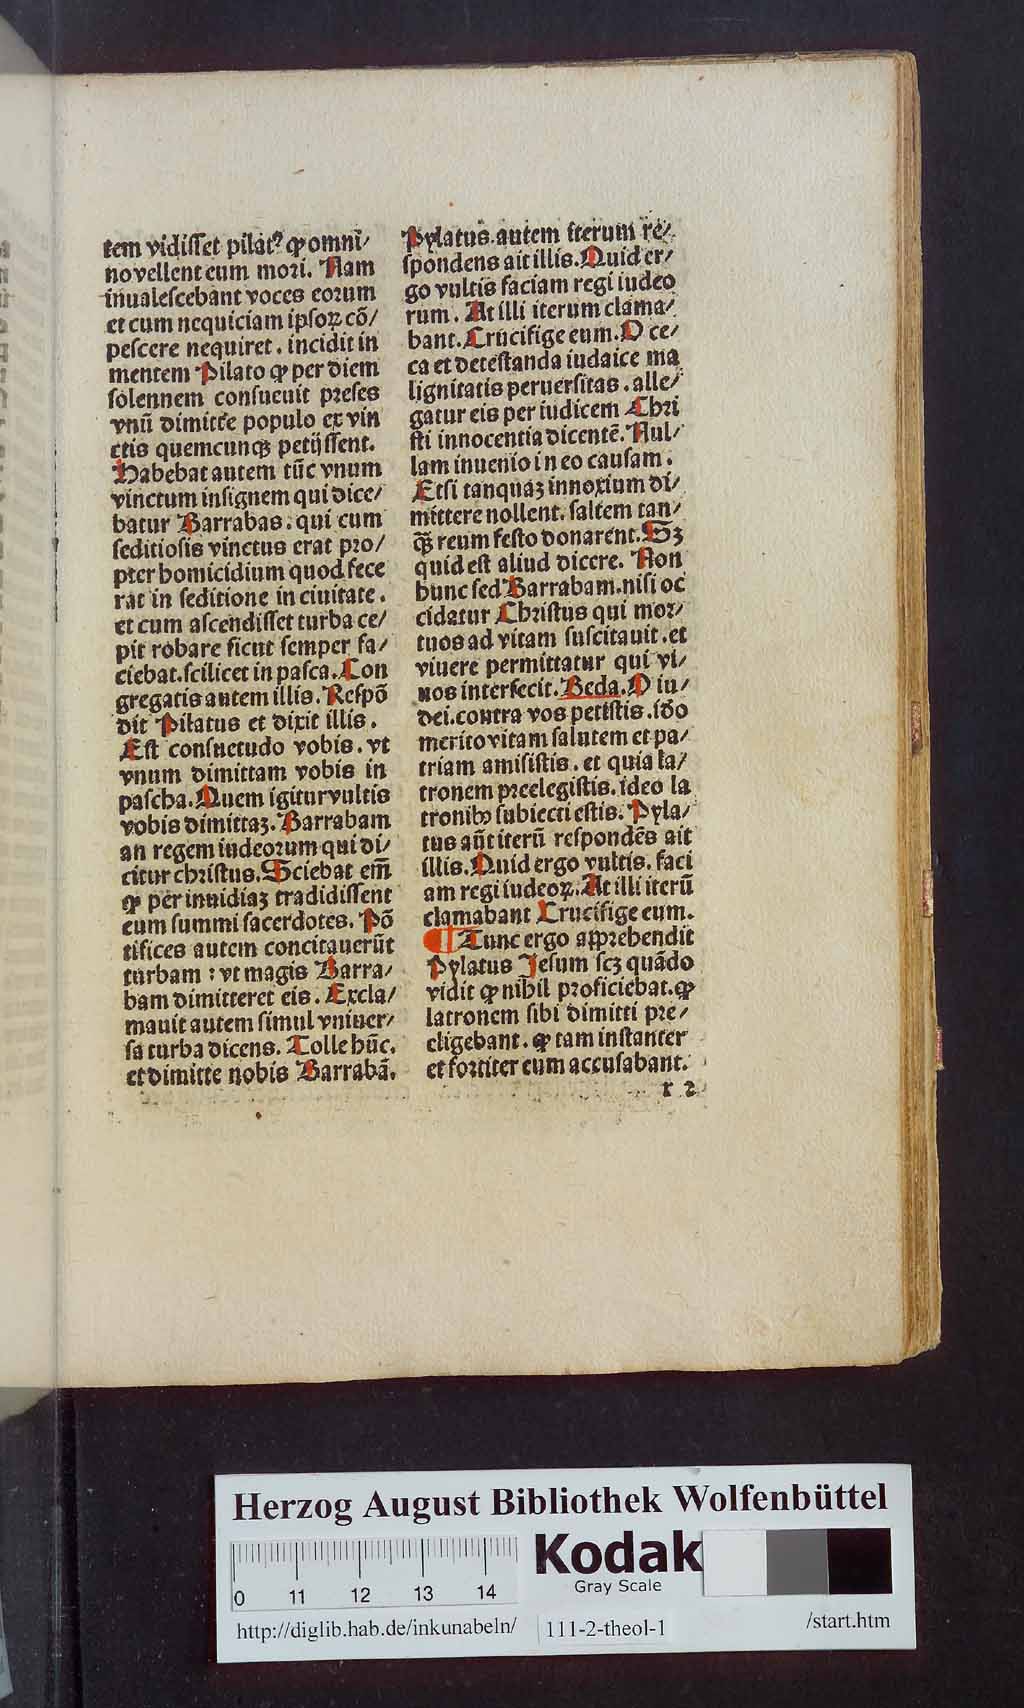 tem vidiſſet pilatꝰ ꝙ omni/
no vellent eum mori. Nam
inualeſcebant voces eorum
et cum nequiciam ipſoꝝ cõ/
peſcere nequiret. incidit in
mentem Pilato ꝙ per diem
ſolennem conſueuit preſes
vnũ dimittẽe populo ex vin
ctis quemcunqꝫ petijſſent.
Habebat autem tũc vnum
vinctum inſignem qui dice/
batur Barrabas. qui cum
ſeditioſis vinctus erat pro/
pter homicidium quod fece
rat in ſeditione in ciuitate.
et cum aſcendiſſet turba ce/
pit robare ſicut ſemper fa/
ciebat. ſcilicet in paſca. Con
gregatis autem illis. Reſpõ
dit Pilatus et dixit illis.
Eſt conſuetudo vobis. vt
vnum dimittam vobis in
paſcha. Quem igitur vultis
vobis dimittaꝫ. Barrabam
an regem iudeorum qui di/
citur chriſtus. Sciebat em̃
ꝙ per inuidiaꝫ tradidiſſent
eum ſummi ſacerdotes. Põ
tifices autem concitauerũt
turbam : vt magis Barra/
bam dimitteret eis. Excla/
mauit autem ſimul vniuer/
ſa turba dicens. Tolle hũc.
et dimitte nobis Barrabã.
Pylatus. autem iterum re/
ſpondens ait illis. Quid er/
go vultis faciam regi iudeo
rum. At illi iterum clama/
bant. Crucifige eum. O ce/
ca et deteſtanda iudaice ma
lignitatis peruerſitas. alle/
gatur eis per iudicem Chri
ſti innocentia dicentẽ. Nul/
lam inuenio in eo cauſam.
Etſi tanquaꝫ innoxium di/
mittere nollent. ſaltem tan/
qꝫ reum feſto donarent. Sꝫ
quid eſt aliud dicere. Non
hunc ſed Barrabam. niſi oc
cidatur Chriſtus qui mor/
tuos ad vitam ſuſcitauit. et
viuere permittatur qui vi/
uos interfecit. Beda. O iu/
dei. contra vos petiſtis. iđo
merito vitam ſalutem et pa/
triam amiſiſtis. et quia la/
tronem preelegiſtis. ideo la
tronibꝰ ſubiecti eſtis. Pyla/
tus aũt iterũ reſpondẽs ait
illis. Quid ergo vultis. faci
am regi iudeoꝝ. At illi iterũ
clamabant Crucifige eum.
¶ Tunc ergo apprehendit
Pylatus Jeſum ſcꝫ quãdo
vidit ꝙ nihil proficiebat. ꝙ
latronem ſibi dimitti pre/
eligebant. ꝙ tam inſtanter
et fortiter eum accuſabant.
r 2
Herzog August Bibliothek Wolfenbüttel
0 11 12 13 14
Kodak
Gray Scale
http://diglib.hab.de/inkunabeln/ 111-2-theol-1 /start.htm